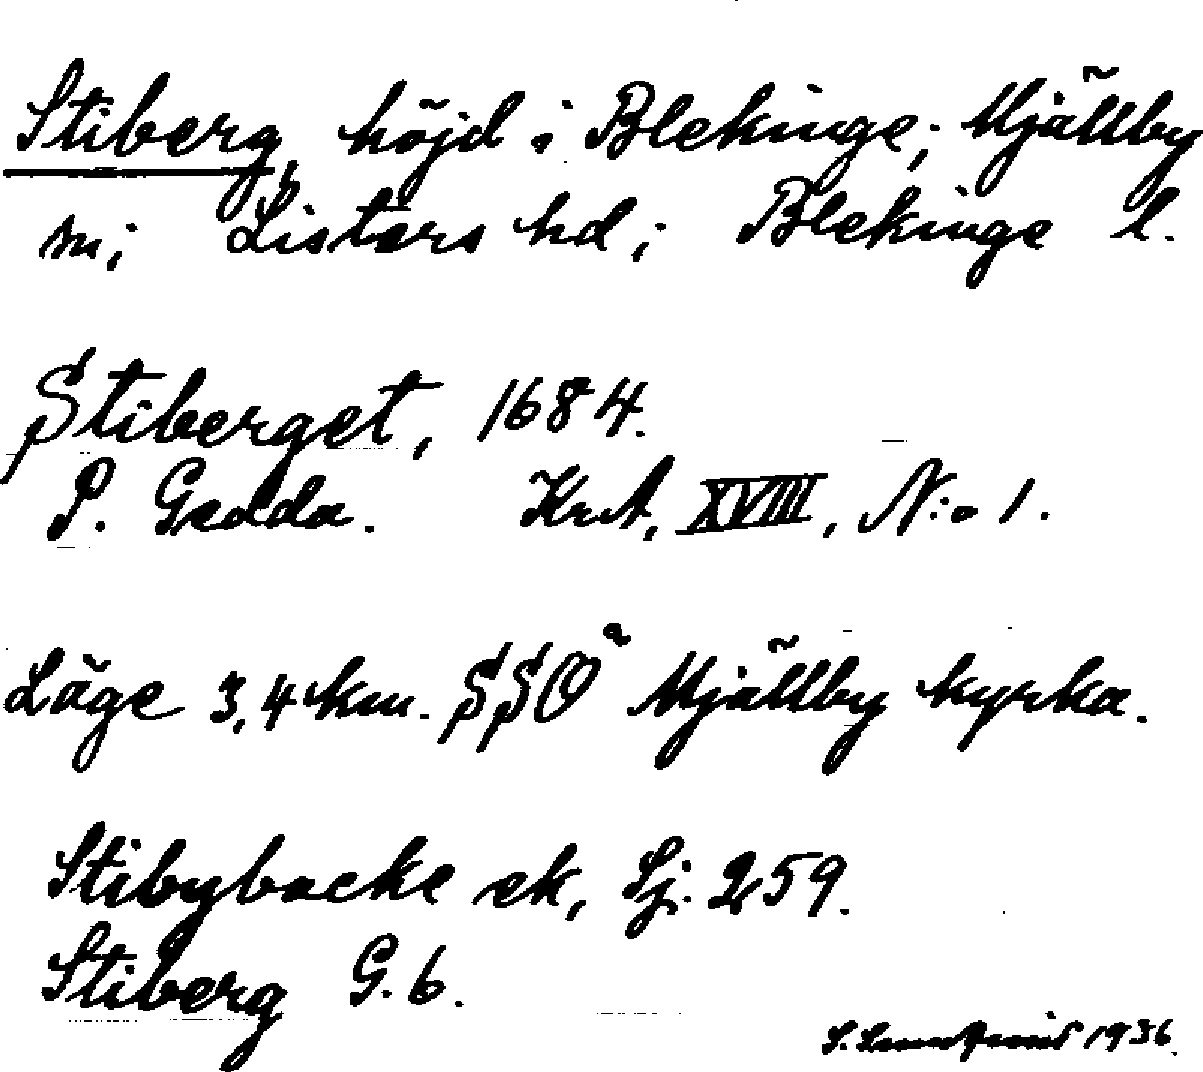 Stiberg, höjd i Blekinge; Mjällby
sn; Listers hd; Blekinge l.
Stiberget, 1684.
P. Gedda. KrA, XVIII, N:o 1.
Läge 3,4 km. SSO a Mjällby kyrka.
Stibybacke ek, Sj. 259.
Stiberg G.6.
1936.